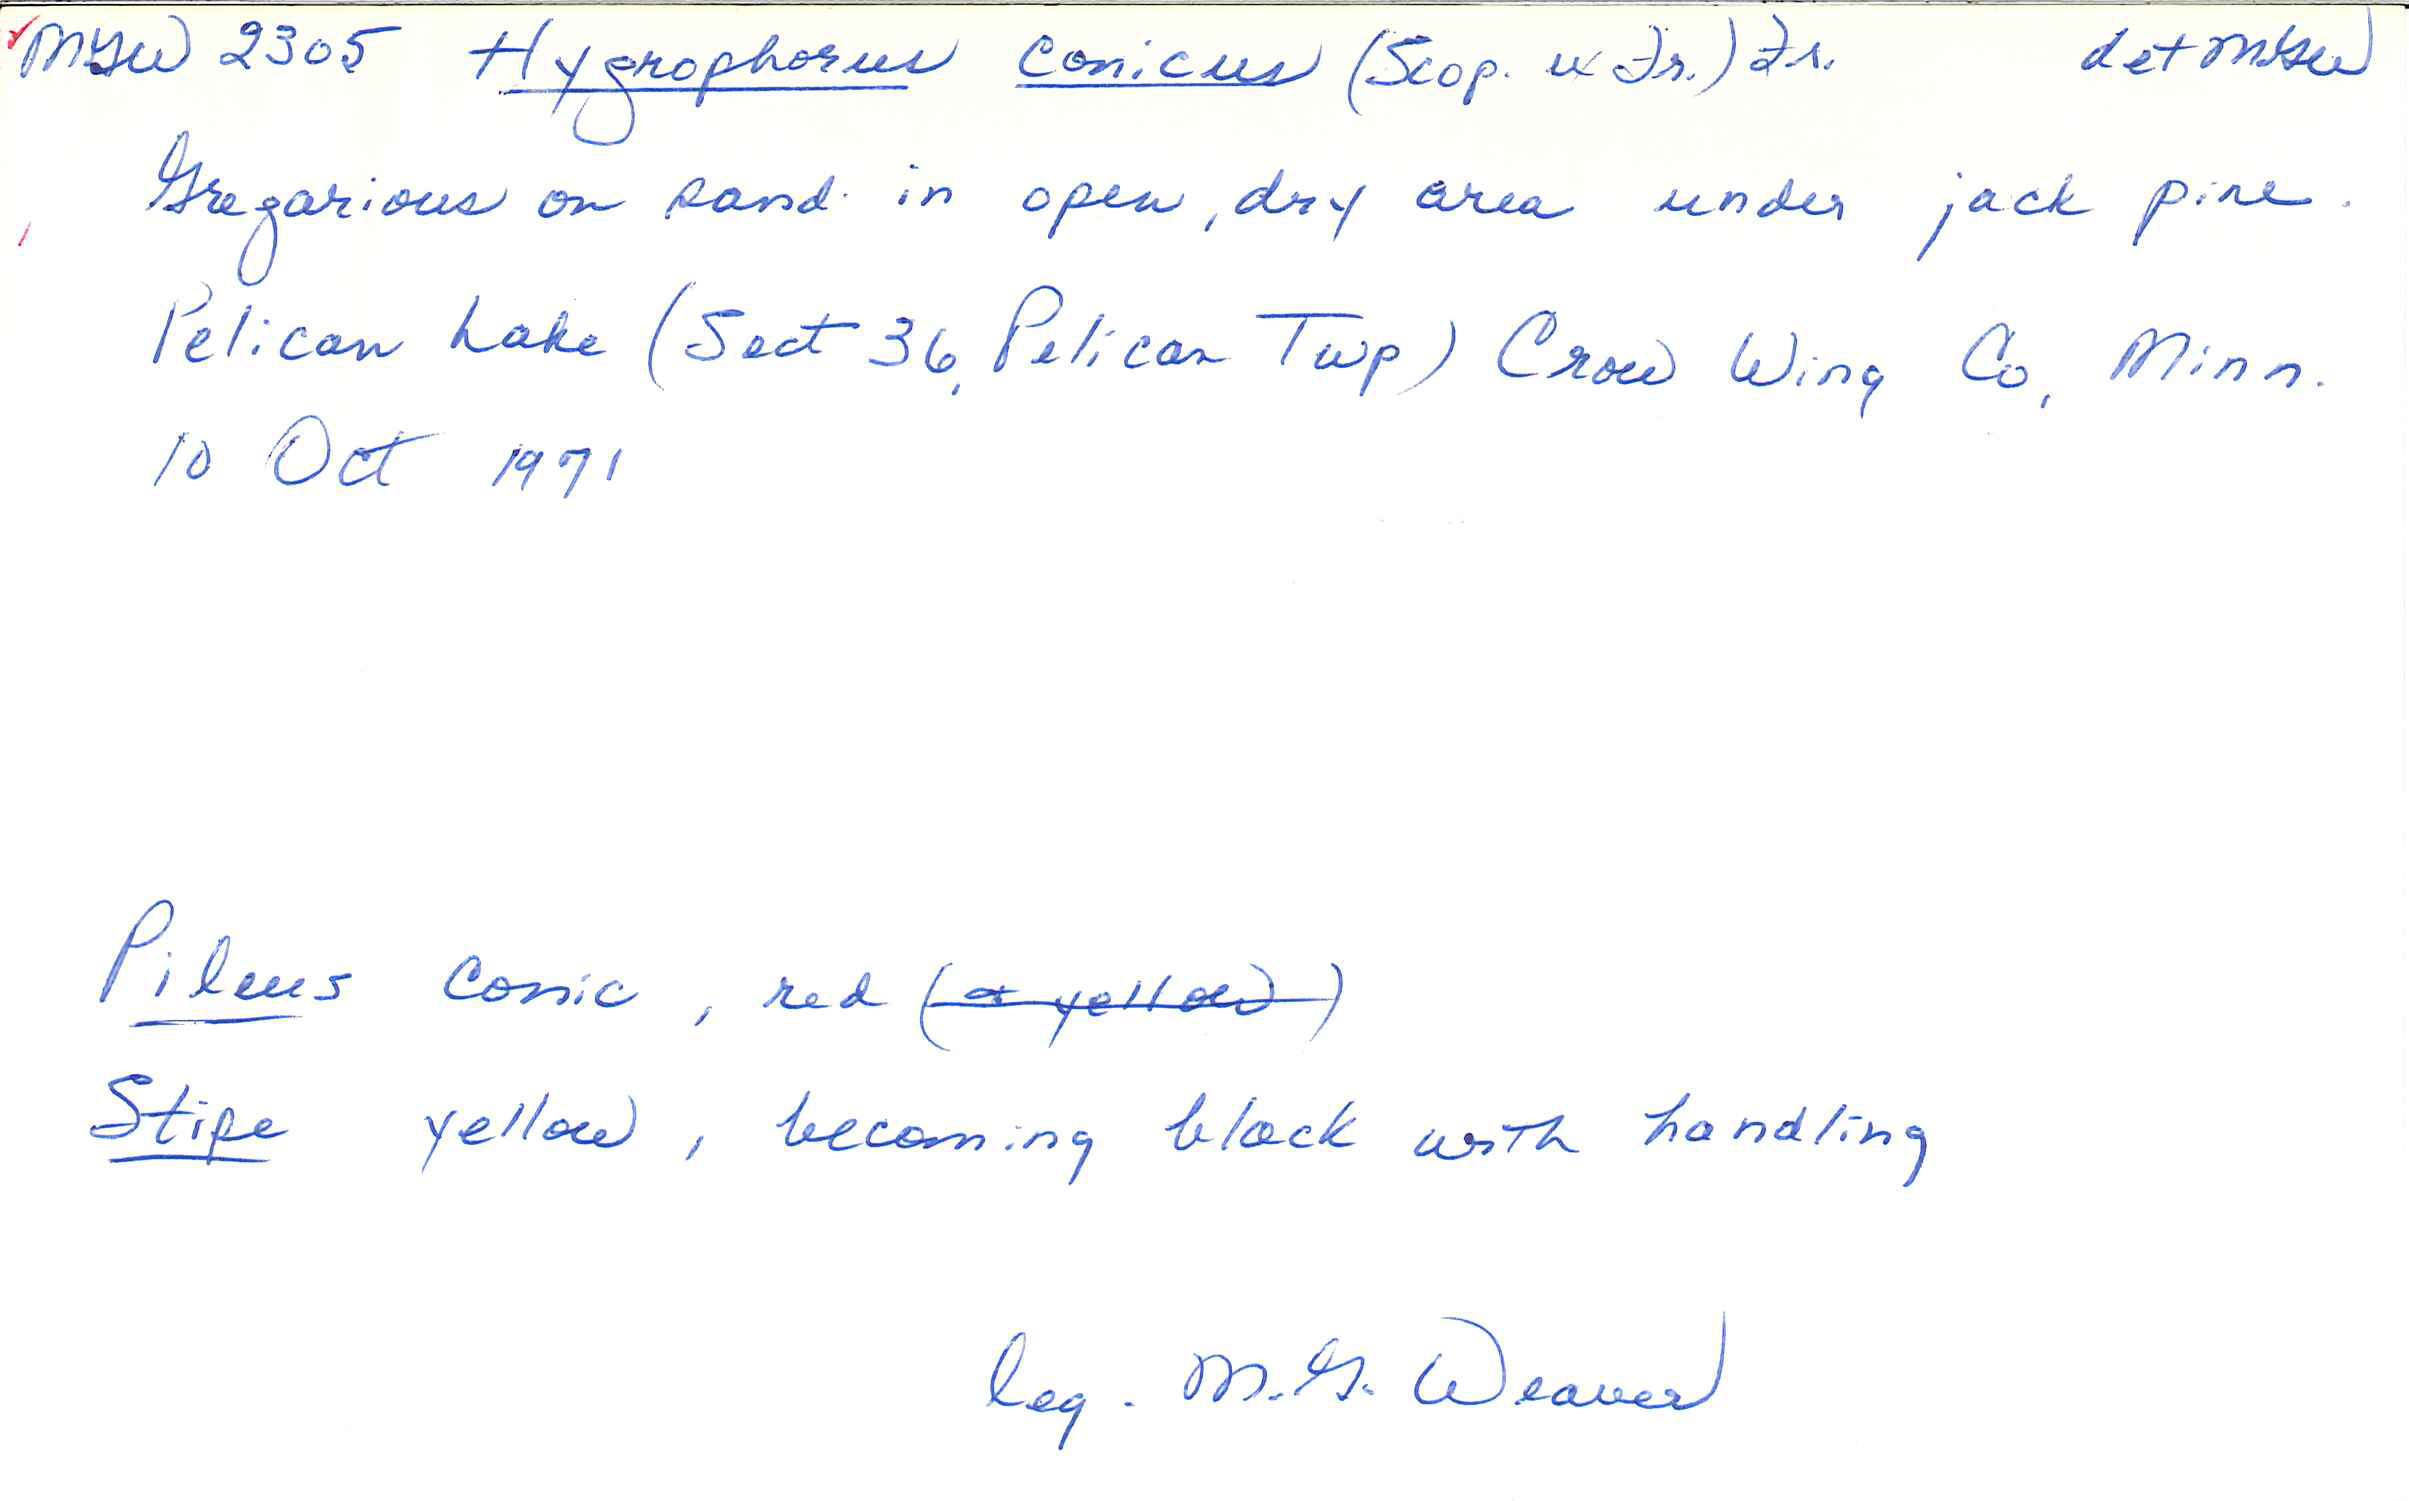 MGW 2305 Hygrophorus conicus (Scop. ex Fr.) Fr. det MGW
Gregarious on sand in open, dry area under jack pine.
Pelican Lake (Sect 36, Pelican Twp) Crow Wing Co, Minn.
10 Oct 1971
Pileus conic, red (or yellow)
Stipe yellow, becoming black with handling
leg. M.G. Weaver